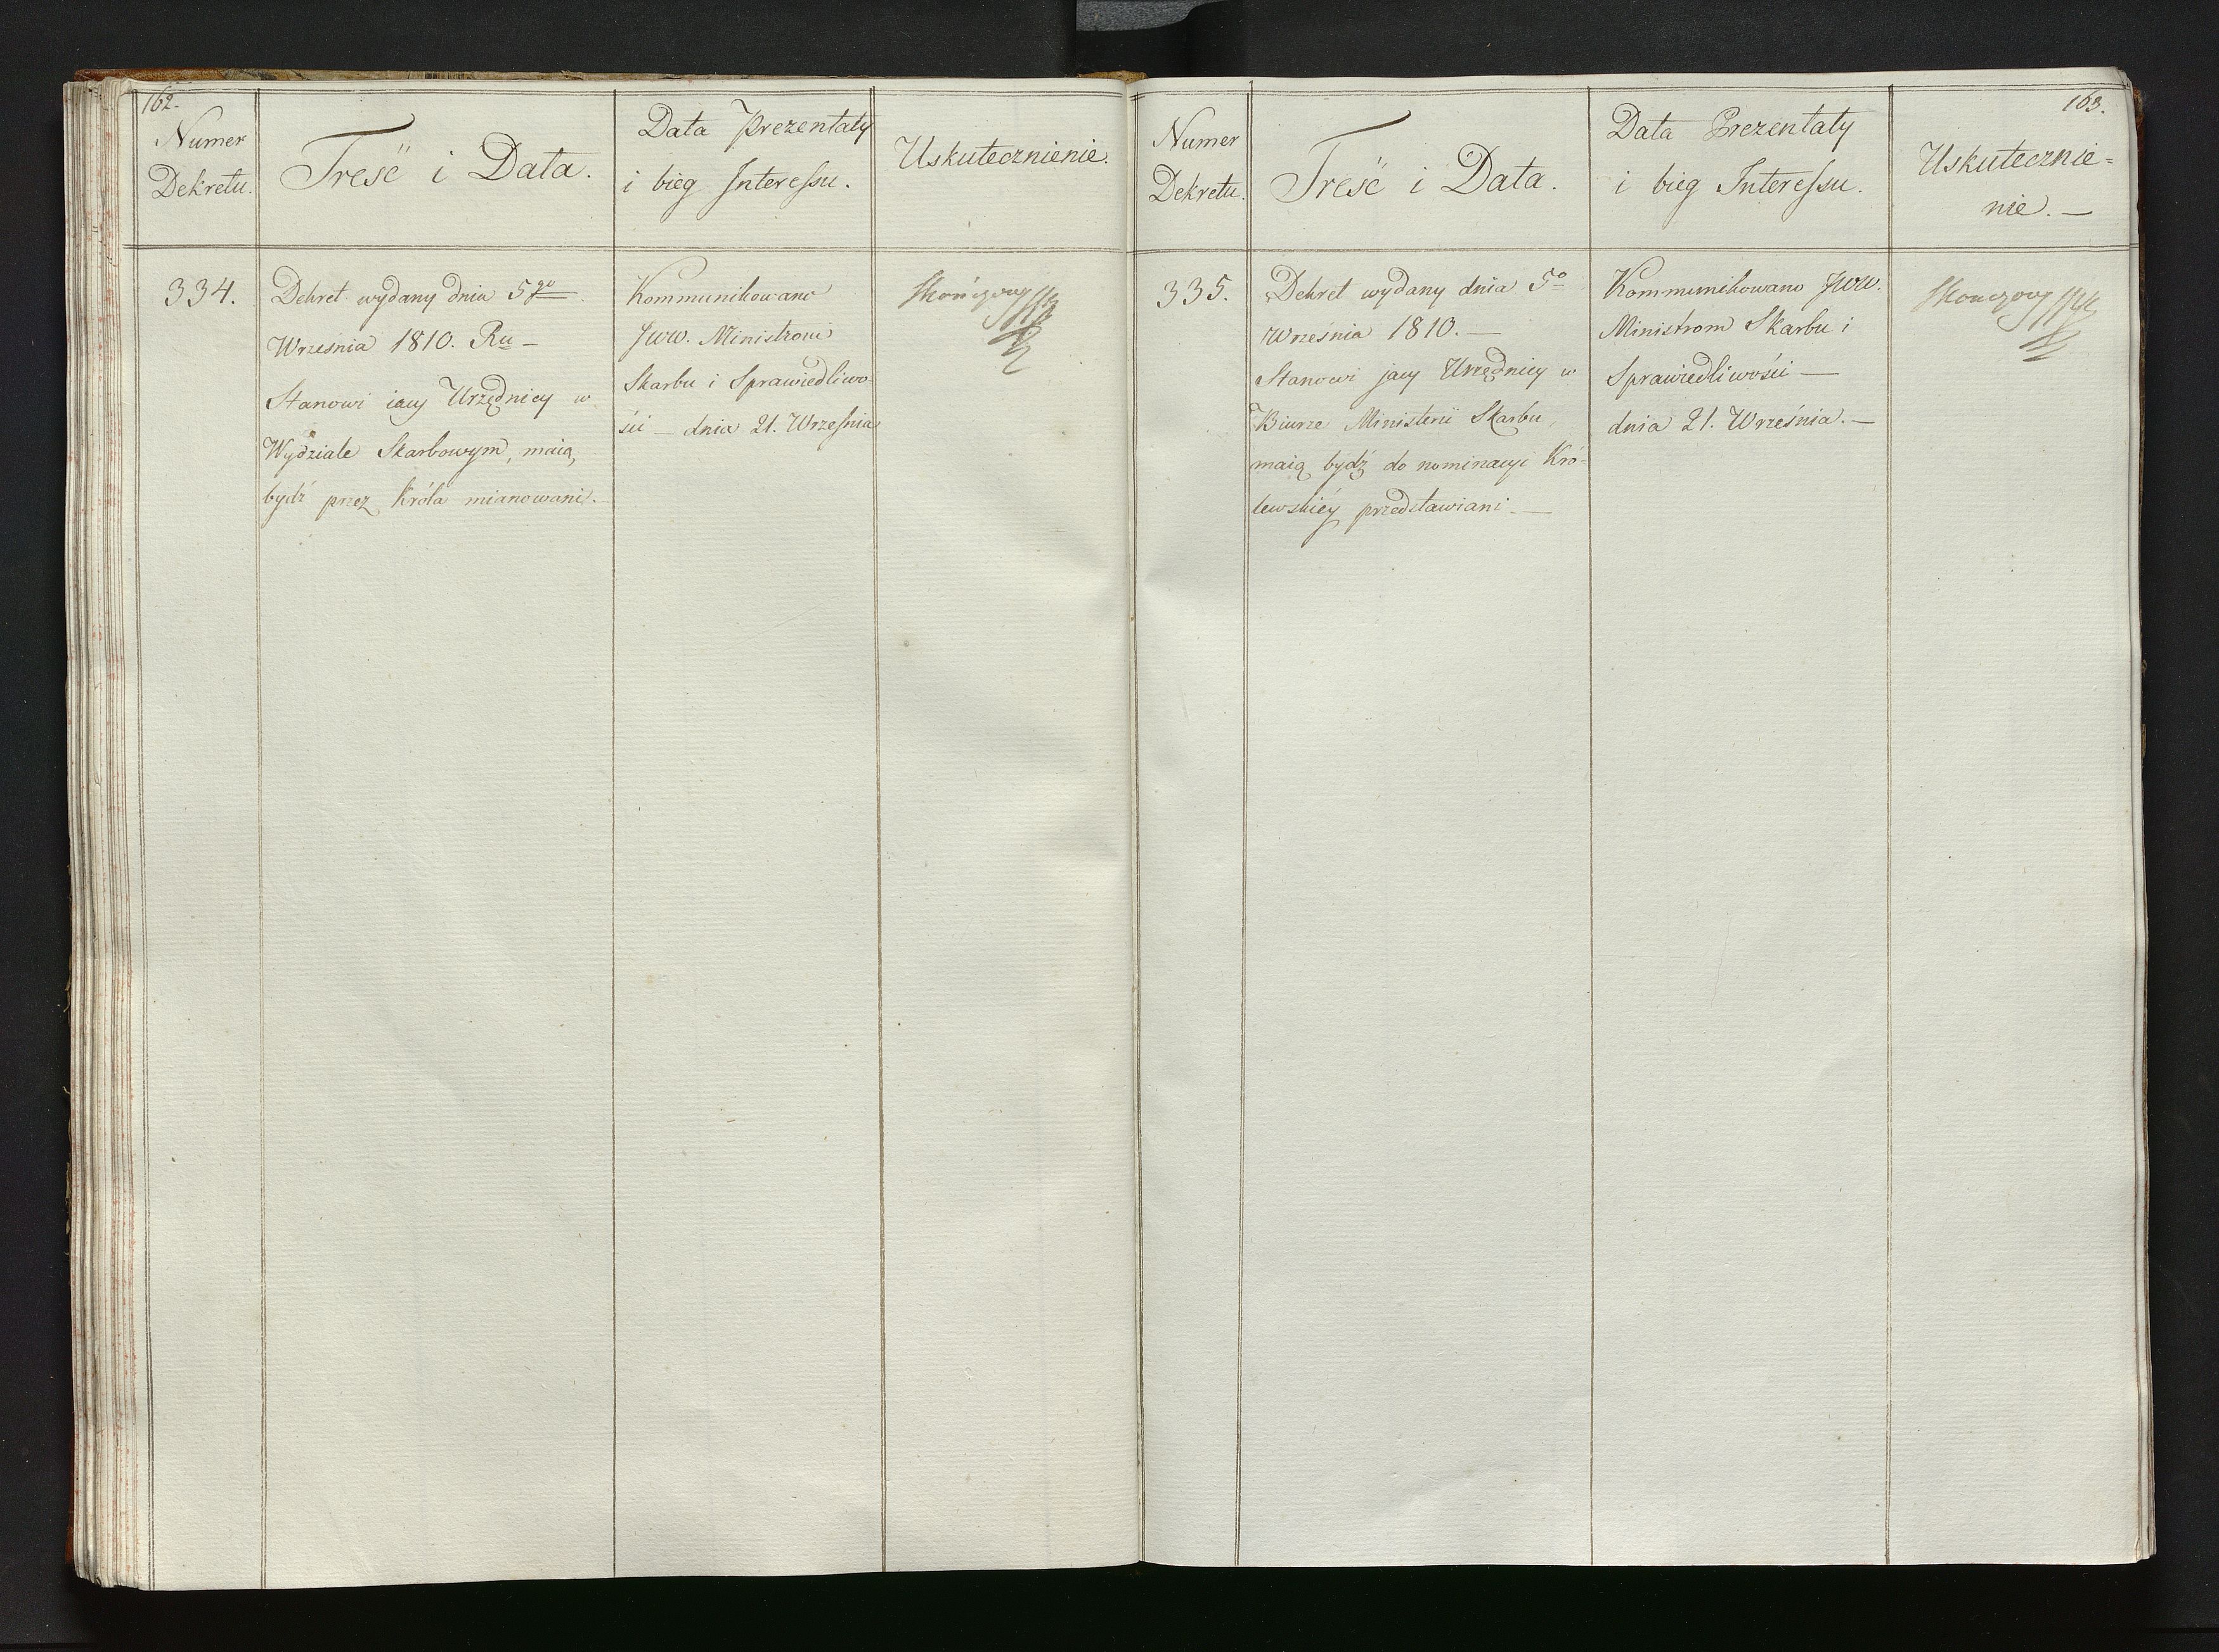 162.
Numer
Dekretu.
Treść i Data.
Data Prezentaty
i bieg Interessu.
Uskutecznienie.
334.
Dekret wydany dnia 5go
Września 1810. Ru –
Stanowi iacy Urzędnicy w
Wydziale Skarbowym, maią
bydź przez Króla mianowani. –
Kommunikowano
JWW. Ministrowi
Skarbu i Sprawiedliwo-
ści – dnia 21. Września
Skończony
163.
Numer
Dekretu.
Treść i Data.
Data Prezentaty
i bieg Interessu.
Uskutecznie=
nie. –
335.
Dekret wydany dnia 5o
Września 1810. –
Stanowi jacy Urzędnicy w
Biurze Ministerii Skarbu,
maią bydź do nominacyi Kró-
lewskiéy przedstawiani. –
Kommunikowano JWW.
Ministrom Skarbu i
Sprawiedliwości –
dnia 21. Września. –
Skonczony